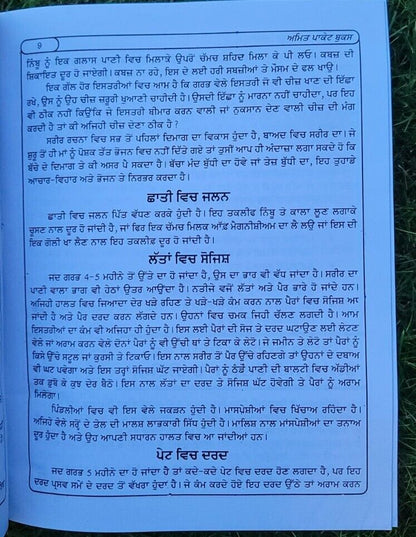 9
ਅਮਿਤ ਪਾਕੇਟ ਬੁਕਸ
ਨਿੰਬੂ ਨੂੰ ਇਕ ਗਲਾਸ ਪਾਣੀ ਵਿਚ ਮਿਲਾਕੇ ਉਪਰੋਂ ਚੱਮਚ ਸ਼ਹਿਦ ਮਿਲਾ ਕੇ ਪੀ ਲਓ। ਕਬਜ਼ ਦੀ
ਸ਼ਿਕਾਇਤ ਦੂਰ ਹੋ ਜਾਏਗੀ। ਕਬਜ਼ ਨਾ ਰਹੇ, ਇਸ ਦੇ ਲਈ ਹਰੀ ਸਬਜ਼ੀਆਂ ਤੇ ਮੌਸਮ ਦੇ ਫਲ ਖਾਉ।
ਇਕ ਗੱਲ ਹੋਰ ਇਸਤਰੀਆਂ ਵਿਚ ਆਮ ਹੈ ਕਿ ਗਰਭ ਵੇਲੇ ਇਸਤਰੀ ਜੋ ਵੀ ਚੀਜ਼ ਖਾਣ ਦੀ ਇੱਛਾ
ਰਖੇ, ਉਸ ਨੂੰ ਉਹ ਚੀਜ਼ ਜ਼ਰੂਰੀ ਖੁਆਣੀ ਚਾਹੀਦੀ ਹੈ। ਉਸਦੀ ਇੱਛਾ ਨੂੰ ਮਾਰਨਾ ਨਹੀਂ ਚਾਹੀਦਾ, ਪਰ ਇਹ
ਵੀ ਠੀਕ ਨਹੀਂ ਕਿਉਂਕਿ ਜੋ ਇਸਤਰੀ ਬੀਮਾਰ ਕਰਨ ਵਾਲੀ ਜਾਂ ਨੁਕਸਾਨ ਦੇਣ ਵਾਲੀ ਚੀਜ਼ ਦੀ ਮੰਗ
ਕਰਦੀ ਹੈ ਤਾਂ ਕੀ ਅਜਿਹੀ ਚੀਜ਼ ਦੇਣਾ ਠੀਕ ਹੈ ?
ਸਰੀਰ ਰਚਨਾ ਵਿਚ ਸਭ ਤੋਂ ਪਹਿਲਾਂ ਦਿਮਾਗ ਦਾ ਵਿਕਾਸ ਹੁੰਦਾ ਹੈ, ਬਾਅਦ ਵਿਚ ਸਰੀਰ ਦਾ। ਜੇ
ਸ਼ੁਰੂ ਤੋਂ ਹੀ ਮਾਂ ਨੂੰ ਪੋਸ਼ਕ ਤੱਤ ਭੋਜਨ ਵਿਚ ਨਹੀਂ ਦਿੱਤੇ ਗਏ ਤਾਂ ਤੁਸੀਂ ਆਪ ਹੀ ਅੰਦਾਜ਼ਾ ਲਗਾ ਸਕਦੇ ਹੋ ਕਿ
ਬੱਚੇ ਦੇ ਦਿਮਾਗ ਤੇ ਕੀ ਅਸਰ ਪੈ ਸਕਦਾ ਹੈ। ਬੱਚਾ ਮੰਦ ਬੁੱਧੀ ਦਾ ਹੋਵੇ ਜਾਂ ਤੇਜ਼ ਬੁੱਧੀ ਦਾ, ਇਹ ਤੁਹਾਡੇ
ਆਚਾਰ-ਵਿਹਾਰ ਅਤੇ ਭੋਜਨ ਤੇ ਨਿਰਭਰ ਕਰਦਾ ਹੈ।
ਛਾਤੀ ਵਿਚ ਜਲਨ
ਛਾਤੀ ਵਿਚ ਜਲਨ ਪਿੱਤ ਵੱਧਣ ਕਰਕੇ ਹੁੰਦੀ ਹੈ। ਇਹ ਤਕਲੀਫ ਨਿੰਬੂ ਤੇ ਕਾਲਾ ਲੂਣ ਲਗਾਕੇ
ਚੂਸਣ ਨਾਲ ਦੂਰ ਹੋ ਜਾਂਦੀ ਹੈ, ਜਾਂ ਫਿਰ ਇਕ ਚੱਮਚ ਮਿਲਕ ਆੱਫ਼ ਮੈਗਨੀਸ਼ੀਅਮ ਦਾ ਲੈ ਲਉ ਜਾਂ ਇਸ ਦੀ
ਇਕ ਗੋਲੀ ਖਾ ਲੈਣ ਨਾਲ ਇਹ ਤਕਲੀਫ ਦੂਰ ਹੋ ਜਾਂਦੀ ਹੈ।
ਲੱਤਾਂ ਵਿਚ ਸੋਜਿਸ਼
ਜਦ ਗਰਭ 4-5 ਮਹੀਨੇ ਤੋਂ ਉੱਤੇ ਦਾ ਹੋ ਜਾਂਦਾ ਹੈ, ਉਸ ਦਾ ਭਾਰ ਵੀ ਵੱਧ ਜਾਂਦਾ ਹੈ। ਸਰੀਰ ਦਾ
ਪਾਣੀ ਵਾਲਾ ਭਾਗ ਵੀ ਹੇਠਾਂ ਉਤਰ ਆਉਦਾ ਹੈ। ਨਤੀਜੇ ਵਜੋਂ ਲੱਤਾਂ ਅਤੇ ਪੈਰ ਭਾਰੇ ਹੋ ਜਾਂਦੇ ਹਨ।
ਅਜਿਹੀ ਹਾਲਤ ਵਿਚ ਜਿਆਦਾ ਦੇਰ ਖੜੇ ਰਹਿਣ ਤੇ ਖੜੇ-ਖੜੇ ਕੰਮ ਕਰਨ ਨਾਲ ਪੈਰਾਂ ਵਿਚ ਸੋਜਿਸ਼ ਆ
ਜਾਂਦੀ ਹੈ ਅਤੇ ਪੈਰ ਦਰਦ ਕਰਨ ਲੱਗਦੇ ਹਨ। ਉਹਨਾਂ ਵਿਚ ਚਮਕ ਜਿਹੀ ਚੱਲਣ ਲਗਦੀ ਹੈ। ਆਮ
ਇਸਤਰੀਆਂ ਦਾ ਕੰਮ ਵੀ ਅਜਿਹਾ ਹੀ ਹੁੰਦਾ ਹੈ। ਇਸ ਲਈ ਪੈਰਾਂ ਦੀ ਸੋਜ ਤੇ ਦਰਦ ਘਟਾਉਣ ਲਈ ਲੇਟਣ
ਵੇਲੇ ਜਾਂ ਅਰਾਮ ਕਰਨ ਵੇਲੇ ਦੋਨਾਂ ਪੈਰਾਂ ਨੂੰ ਵੀ ਉੱਚੀ ਥਾਂ ਤੇ ਟਿਕਾ ਕੇ ਲੇਟੋ। ਜੇ ਜਮੀਨ ਤੇ ਲੇਟੋ ਤਾਂ ਪੈਰਾਂ ਨੂੰ
ਕਿਸੇ ਉੱਚੇ ਸਟੂਲ ਜਾਂ ਕੁਰਸੀ ਤੇ ਟਿਕਾਓ। ਇਸ ਨਾਲ ਸਰੀਰ ਤੋਂ ਪੈਰ ਉੱਚੇ ਰਹਿਣਗੇ ਤਾਂ ਉਹਨਾਂ ਦੇ ਦਬਾਅ
ਵੀ ਘੱਟ ਪਵੇਗਾ ਅਤੇ ਇਸ ਤਰ੍ਹਾਂ ਸੋਜਿਸ਼ ਘੱਟ ਜਾਏਗੀ। ਪੈਰਾਂ ਨੂੰ ਠੰਡੇਂ ਪਾਣੀ ਦੀ ਬਾਲਟੀ ਵਿਚ ਅੱਡੀਆਂ
ਤਕ ਡੁਬੋ ਕੇ ਕੁਝ ਦੇਰ ਬੈਠੋ। ਇਸ ਨਾਲ ਲੱਤਾਂ ਦਾ ਦਰਦ ਤੇ ਸੋਜਿਸ਼ ਘੱਟ ਹੋਵੇਗੀ ਤੇ ਪੈਰਾਂ ਨੂੰ ਅਰਾਮ
ਮਿਲੇਗਾ।
ਪਿੰਡਲੀਆਂ ਵਿਚ ਵੀ ਇਸ ਵੇਲੇ ਜਕੜਨ ਹੁੰਦੀ ਹੈ। ਮਾਸਪੇਸ਼ੀਆਂ ਵਿਚ ਖਿੱਚਾਅ ਰਹਿੰਦਾ ਹੈ।
ਅਜਿਹੇ ਵੇਲੇ ਸਰ੍ਹੋਂ ਦੇ ਤੇਲ ਦੀ ਮਾਲਸ਼ ਲਾਭਕਾਰੀ ਸਿੱਧ ਹੁੰਦੀ ਹੈ। ਮਾਲਿਸ਼ ਨਾਲ ਮਾਂਸਪੇਸ਼ੀਆਂ ਦਾ ਤਨਾਅ
ਦੂਰ ਹੁੰਦਾ ਹੈ ਅਤੇ ਉਹ ਆਪਣੀ ਸਧਾਰਨ ਹਾਲਤ ਵਿਚ ਆ ਜਾਂਦੀਆਂ ਹਨ।
ਪੇਟ ਵਿਚ ਦਰਦ
ਜਦ ਗਰਭ 5 ਮਹੀਨੇ ਦਾ ਹੋ ਜਾਂਦਾ ਹੈ ਤਾਂ ਕਦੇ-ਕਦੇ ਪੇਟ ਵਿਚ ਦਰਦ ਹੋਣ ਲਗਦਾ ਹੈ, ਪਰ ਇਹ
ਦਰਦ ਪ੍ਰਸਵ ਸਮੇਂ ਦੇ ਦਰਦ ਤੋਂ ਵੱਖਰਾ ਹੁੰਦਾ ਹੈ। ਜੇ ਕੰਮ ਕਰਦੇ ਹੋਏ ਇਹ ਦਰਦ ਉੱਠੇ ਤਾਂ ਅਰਾਮ ਕਰਨ